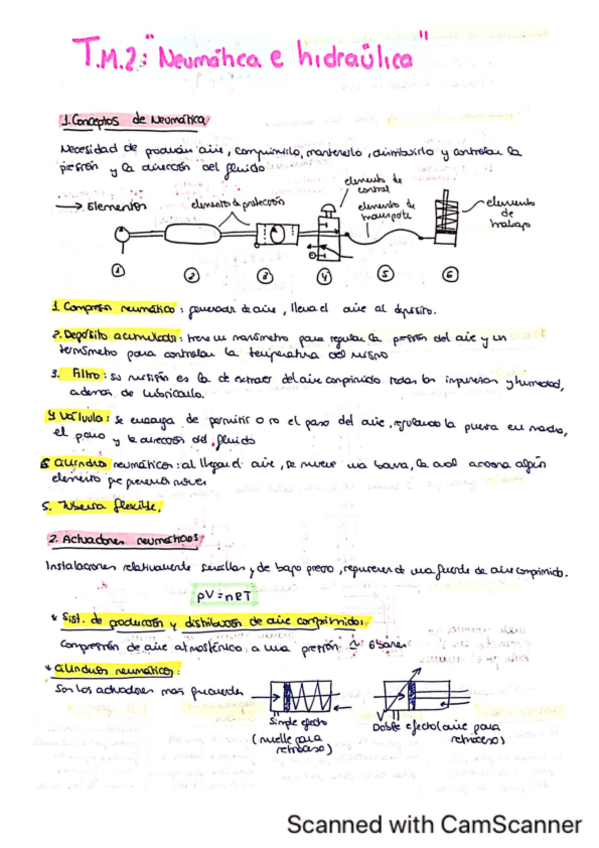 T.M.2: "Neumática e hidraúlica"
1. Conceptos de Neumática
Necesidad de producir aire, comprimirlo, mantenerlo, distribuirlo y controlar la
presión y la dirección del fluido
→ Elementos
elementos de protección
elemento de
control
elementos de
transporte
elementos
de
trabajo
1 2 3 4 5 6
1. Compresor neumático: generador de aire, lleva el aire al depósito.
2. Depósito acumulador: tiene un manómetro para regular la presión del aire y un
termómetro para controlar la temperatura del mismo
3. Filtro: su misión es la de extraer del aire comprimido todas las impurezas y humedad,
además de lubricarlo.
4 Válvula: se encarga de permitir o no el paso del aire, regulando la puesta en marcha,
el paro y la dirección del fluido
6 Cilindros neumáticos: al llegar el aire, se mueve una barra, la cual acciona algún
elemento
5. Tubería flexible.
2. Actuadores neumáticos
Instalaciones relativamente sencillas y de bajo precio, requieren de una fuente de aire comprimido.
pV = nRT
* Sist. de producción y distribución de aire comprimido:
Compresión de aire atmosférico a una presión ≃ 6 bares
* Cilindros neumáticos:
Son los actuadores más frecuentes
Simple efecto
(muelle para
retroceso)
Doble efecto (aire para
retroceso)
Scanned with CamScanner